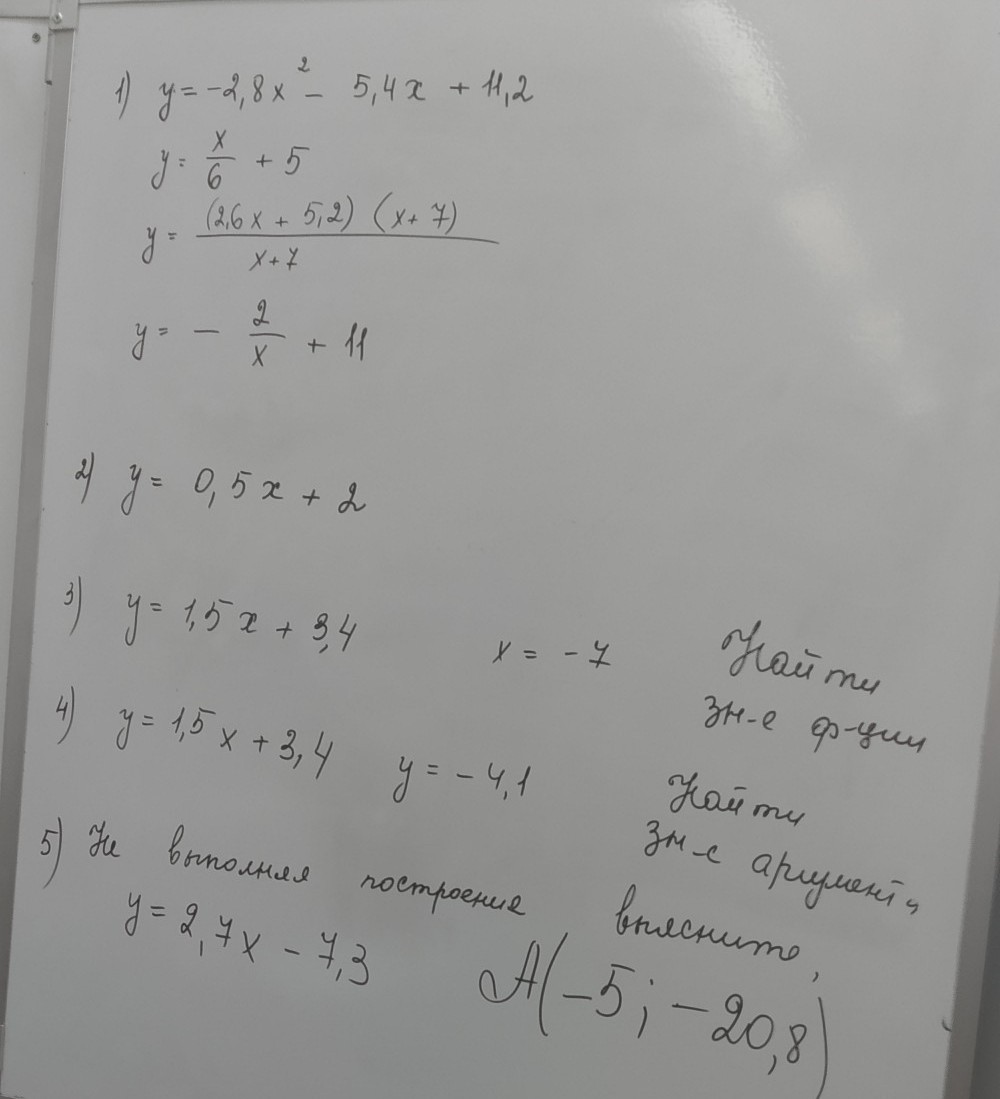 1) y = -2,8x² - 5,4x + 11,2
y = x/6 + 5
y = (2,6x + 5,2) (x + 7)/x+7
y = - 2/x + 11
2) y = 0,5x + 2
3) y = 1,5x + 3,4 x = -7 Найти зн-е ф-ции
4) y = 1,5x + 3,4 y = -4,1 Найти зн-е аргумента
5) Не выполняя построение выясните,
y = 2,7x - 7,3 A(-5; -20,8)